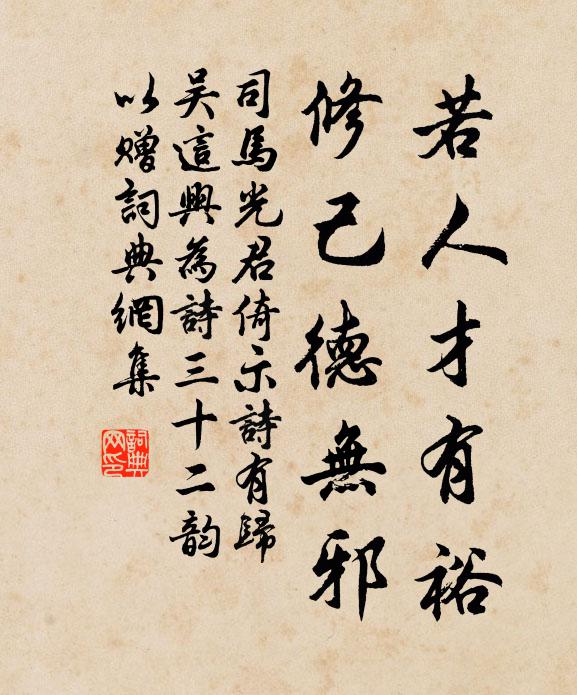 若人才有裕
修己德無邪
司馬光君倚示詩有歸
吴這興為詩三十二韵
以贈詞典網集
詞典网印